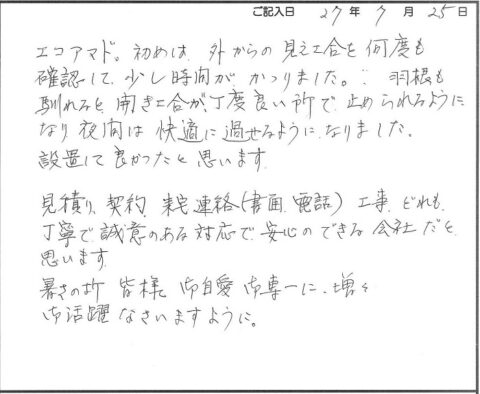 ご記入日 27年 7月 25日
エコアマド。初めは、外からの見え工合を何度も
確認して、少し時間がかかりました。 羽根も
馴れると、開き工合が、丁度良い所で、止められるように
なり夜間は快適に過せるように、なりました。
設置して良かったと思います。
見積り、契約、来宅、連絡(書面、電話) 工事、どれも、
丁寧で、誠意のある対応で、安心のできる会社だと、
思います。
暑さの折 皆様、御自愛御専一に、増々
御活躍なさいますように。